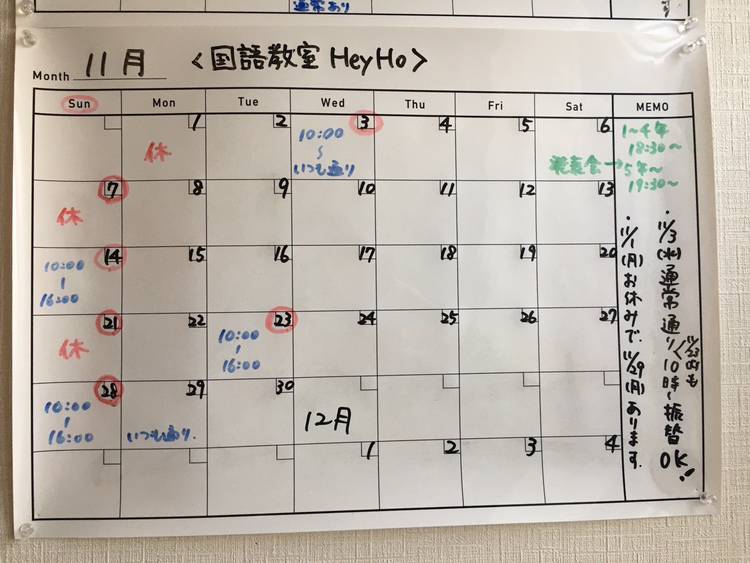 通常あり
Month 11月 <国語教室 HeyHo>
Sun Mon Tue Wed Thu Fri Sat MEMO
1 2 3 4 5 6
休
10:00
～
いつも通り
発表会→
1~4年
18:30~
5年~
19:30~
7 8 9 10 11 12 13
休
14 15 16 17 18 19 20
10:00
~
16:00
21 22 23 24 25 26 27
休
10:00
~
16:00
28 29 30
10:00
~
16:00
いつも通り.
12月
1 2 3 4
・11/3(水)通常通り(10時~振替OK!!
11/23(火)も
・11/1(月)お休みで、11/29(月)あります。